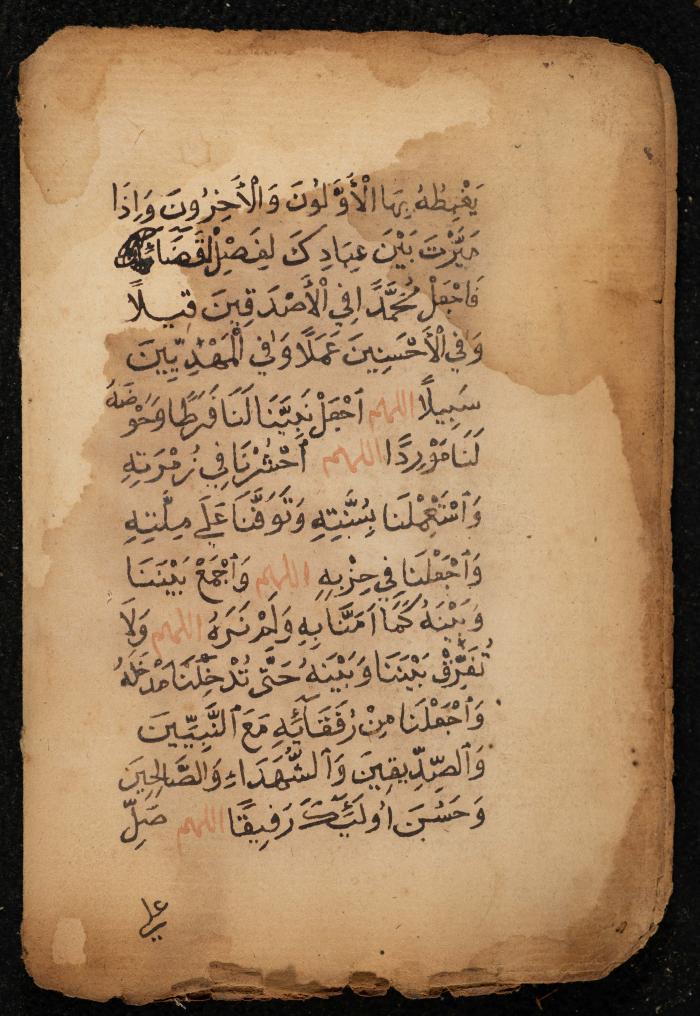 يَغْبِطُهُ بِهَا الْأَوَّلُونَ وَالْأَخِرُونَ وَاِذَا
مَيَّزْتَ بَيْنَ عِبَادِكَ لِفَصْلِ
فَاجْعَلْ مُحَمَّدً افِي الْأَصْدَقِينَ قِيلًا
وَفِي الْأَحْسَنِينَ عَمَلًا وَفِي الْمَهْدِيِّينَ
سَبِيلًا اللهم ٱجْعَلْ نَبِيَّنَا لَنَا فَرَطًا وَحَوْضَهُ
لَنَا مَوْرِدًا اللهم ٱحْشُرْنَا فِي زُمْرَتِهِ
وَٱسْتَعْمِلْنَا بِسُنَّتِهِ وَتَوَفَّنَا عَلَى مِلَّتِهِ
وَٱجْعَلْنَا فِي حِزْبِهِ اللهم وَٱجْمَعْ بَيْنَنَا
وَبَيْنَهُ كَمَا اَمَنَّا بِهِ وَلَمْ نَرَهُ اللهم وَلَا
تُفَرِّقْ بَيْنَنَا وَبَيْنَهُ حَتَّى تُدْخِلَنَا مَدْخَلَهُ
وَٱجْعَلْنَا مِنْ رُفَقَائِهِ مَعَ ٱلنَّبِيِّينَ
وَٱلصِّدِّيقِينَ وَٱلشُّهَدَاءِ وَالصَّالِحِينَ
وَحَسُنَ اُولَئِكَ رَفِيقًا اللهم صَلِّ
على